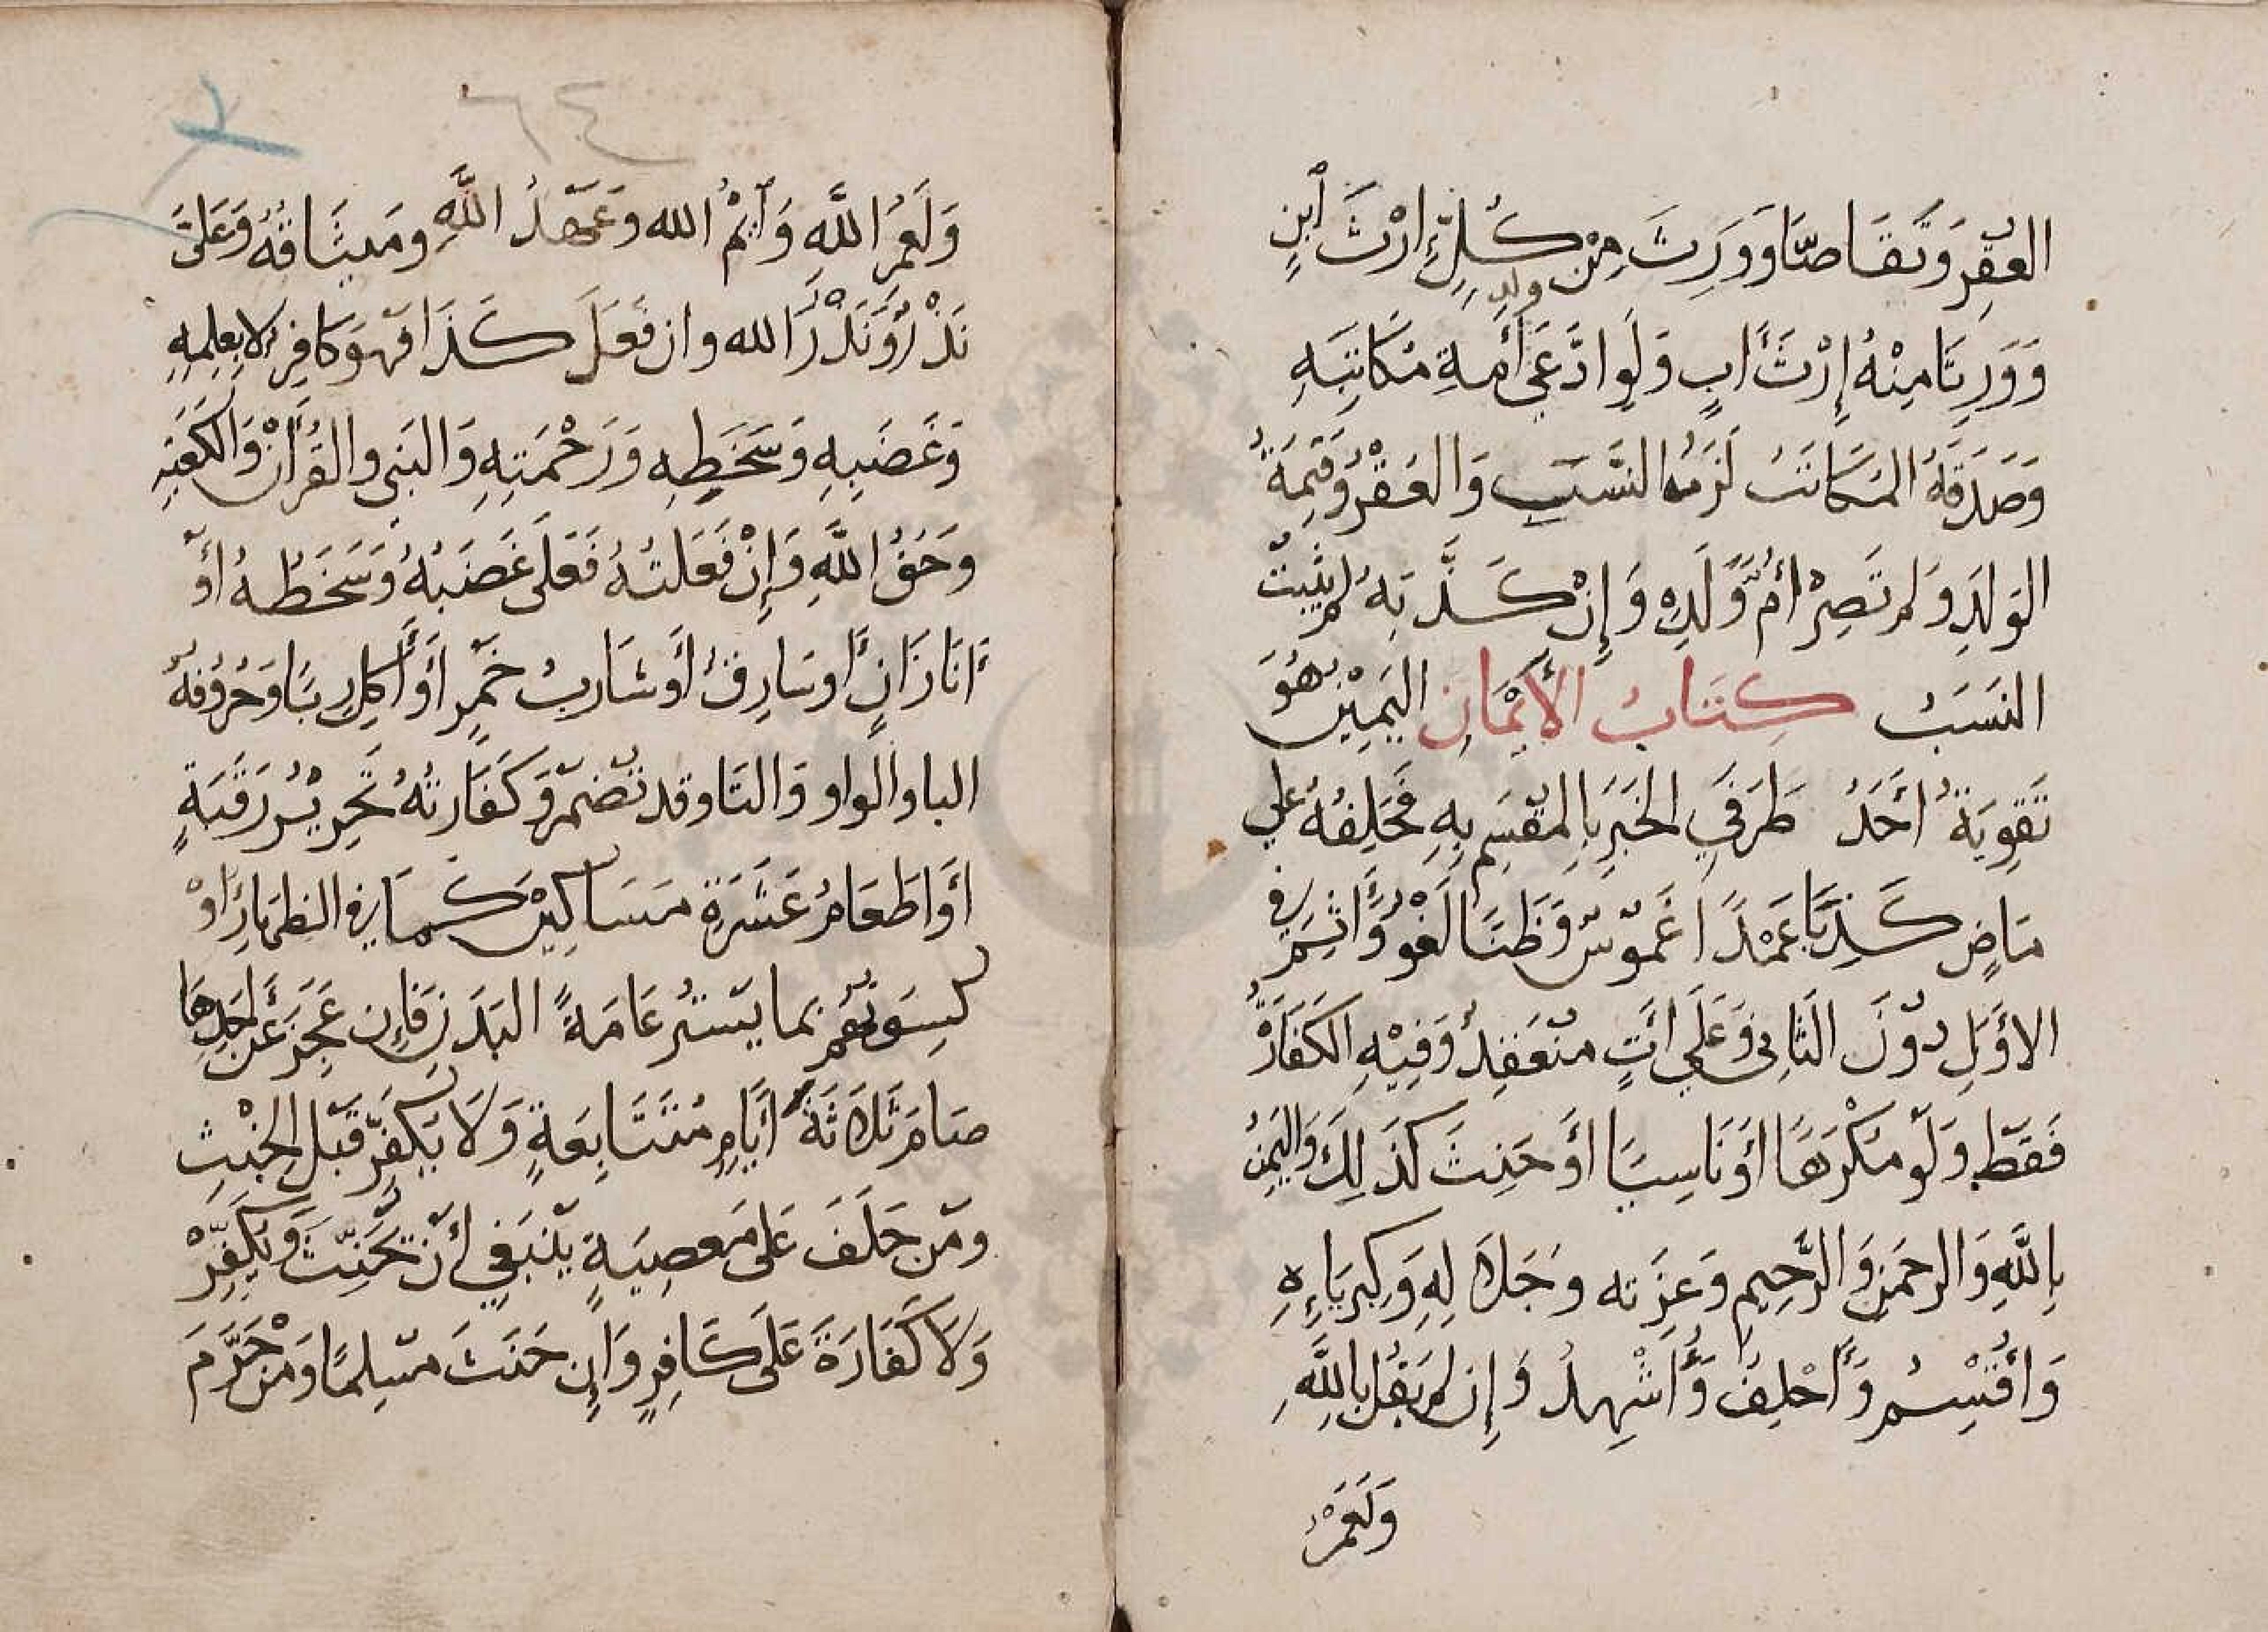 العُقْرِ وَتَقَاصَّا وَوَرِثَ مِنْ كُلٍّ إِرْثَ ٱبْنٍ
ولدٍ
وَوَرِثَا مِنْهُ إِرْثَ أَبٍ وَلَوِ ادَّعَى أَمَةِ مُكَاتَبَهِ
وَصَدَقَهُ المُكَاتَبُ لَزِمَهُ النَّسَبَ وَالعُقْرُ وَقِيمَةُ
الوَلَدِ وَلَمْ تَصِرْ أُمُّ وَلَدِهِ وَإِنْ كَذَّبَهُ لَمْ يَثْبُتْ
النَسَبُ كِتَابُ الأَيْمَانِ اليَمِيْنُ هُوَ
تَقْوِيَةُ أَحَدُ طَرَفَيِ الخَبَرِ بِالمُقْسَمِ بِهِ فَحَلِفُهُ عَلي
مَاضٍ كَذِبًا عَمْدًا غَمُوْسٌ وَظَنًا لَغْوٌ وَأَثِمَ في
الأَوَّلِ دُوْنَ الثَانِى وَعَلَي أَتٍ مُنْعَقِدٌ وَفِيْهِ الكَفَارَةُ
فَقَطْ وَلَوْ مُكْرَهًا أَوْ نَاسِيًا أَوْ حَنِثَ كَذَلِكَ وَاليَمِيْنُ
بِاللَّهِ وَالرحمَنِ وَالرَّحِيمِ وَعِزَته وَجَلَالِهِ وَكِبْرِيَاءِهِ
وَأُقْسِمُ وَأَحْلِفُ وَأَشْهَدُ وَإِن لَمْ يَقُل بِاللَّهِ
وَلَعَمْرُ
٦٤
وَلَعَمْرُ اللَّهِ وَٱيْمُ الله وَعَهْدُ اللَّهِ ومَيثَاقُهُ وَعَلىَّ
نَذْرٌ وَنَذْرُ الله وان فَعَلَ كَذَا فَهوَ كَافِر لا بِعِلمِهِ
وَغَضَبِهِ وَسَخَطِهِ وَرَحْمَتِهِ وَالنَبِى والقُرْأَنْ وَالكَعْبَةِ
وَحَقُ اللَّهِ وَإِنْ فَعَلتُهُ فَعَلَى غَضَبُهُ وَسَخَطُهُ أَوْ
أَنَا زَانٍ أَو سَارِقٌ أَو شَارِبُ خَمْرٍ أَوْ أَكِلُ رِبًا وَحُرُوْفُهُ
البا والواو وَالتَا وقد تُضْمَرُ وَكَفَارَتُهُ تَحْرِيْرُ رَقَبَةٍ
أَوْ اطْعَامُ عَشَرَةِ مَسَاكِيْنَ كَمَا في الظهَارِ أَوْ
كِسْوَتُهُمْ بَما يَسْتُرُ عَامَةً البَدَنِ فَإِن عَجِزَ عَنْ أَحَدِهَا
صَامَ ثَلَاثَةَ أَيَّامٍ مُتَتَابِعَةٍ وَلَا يُكَفِّرُ قَبْلَ الحِنْثِ
ومَن حَلَفَ عَلى مَعصِيَةٍ يَنْبَغِي أَنْ يَحْنَثَ وَيُكَفِّرْ
وَلَا كَفَارَةَ عَلَى كَافِرٍ وَإِن حَنَثَ مُسْلِمًا وَمَنْ حَرَّمَ